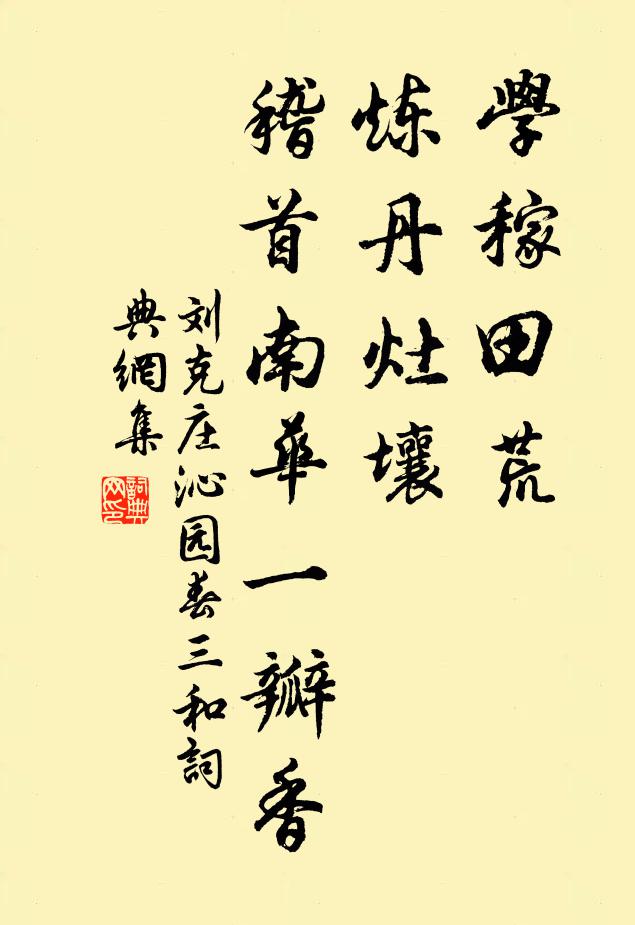 學稼田荒
炼丹灶壤
稽首南華一瓣香
刘克庄沁园春三和詞
典網集
詞典网印